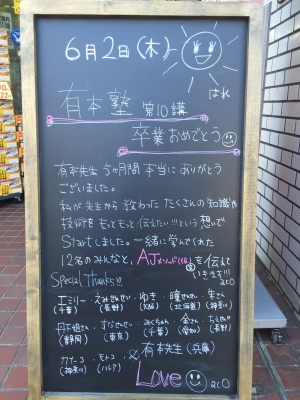 6月2日(木)
はれ
有本塾 第10講
卒業おめでとう
有本先生 5ヶ月間 本当に ありがとう
ございました。
私が 先生から 教わった たくさんの 知識や
技術を もっともっと 伝えたい!!! という 想いで
Startしました。一緒に学んでくれた
12名のみんなと、AJメソッド(仮)を伝えて
いきます!!!
aco
Special Thanks!!
エミリー・えみせんせい・ゆき・曜せんせい・朱さん
(千葉) (長野) (大阪) (北海道) (神奈川)
丹下姐さん・すぴせんせい・みくちゃん・金さん・
(静岡) (東京) (千葉) (愛知) (長野)
カナコ・モトコ & 有本先生(兵庫)
(神奈川)
Love aco